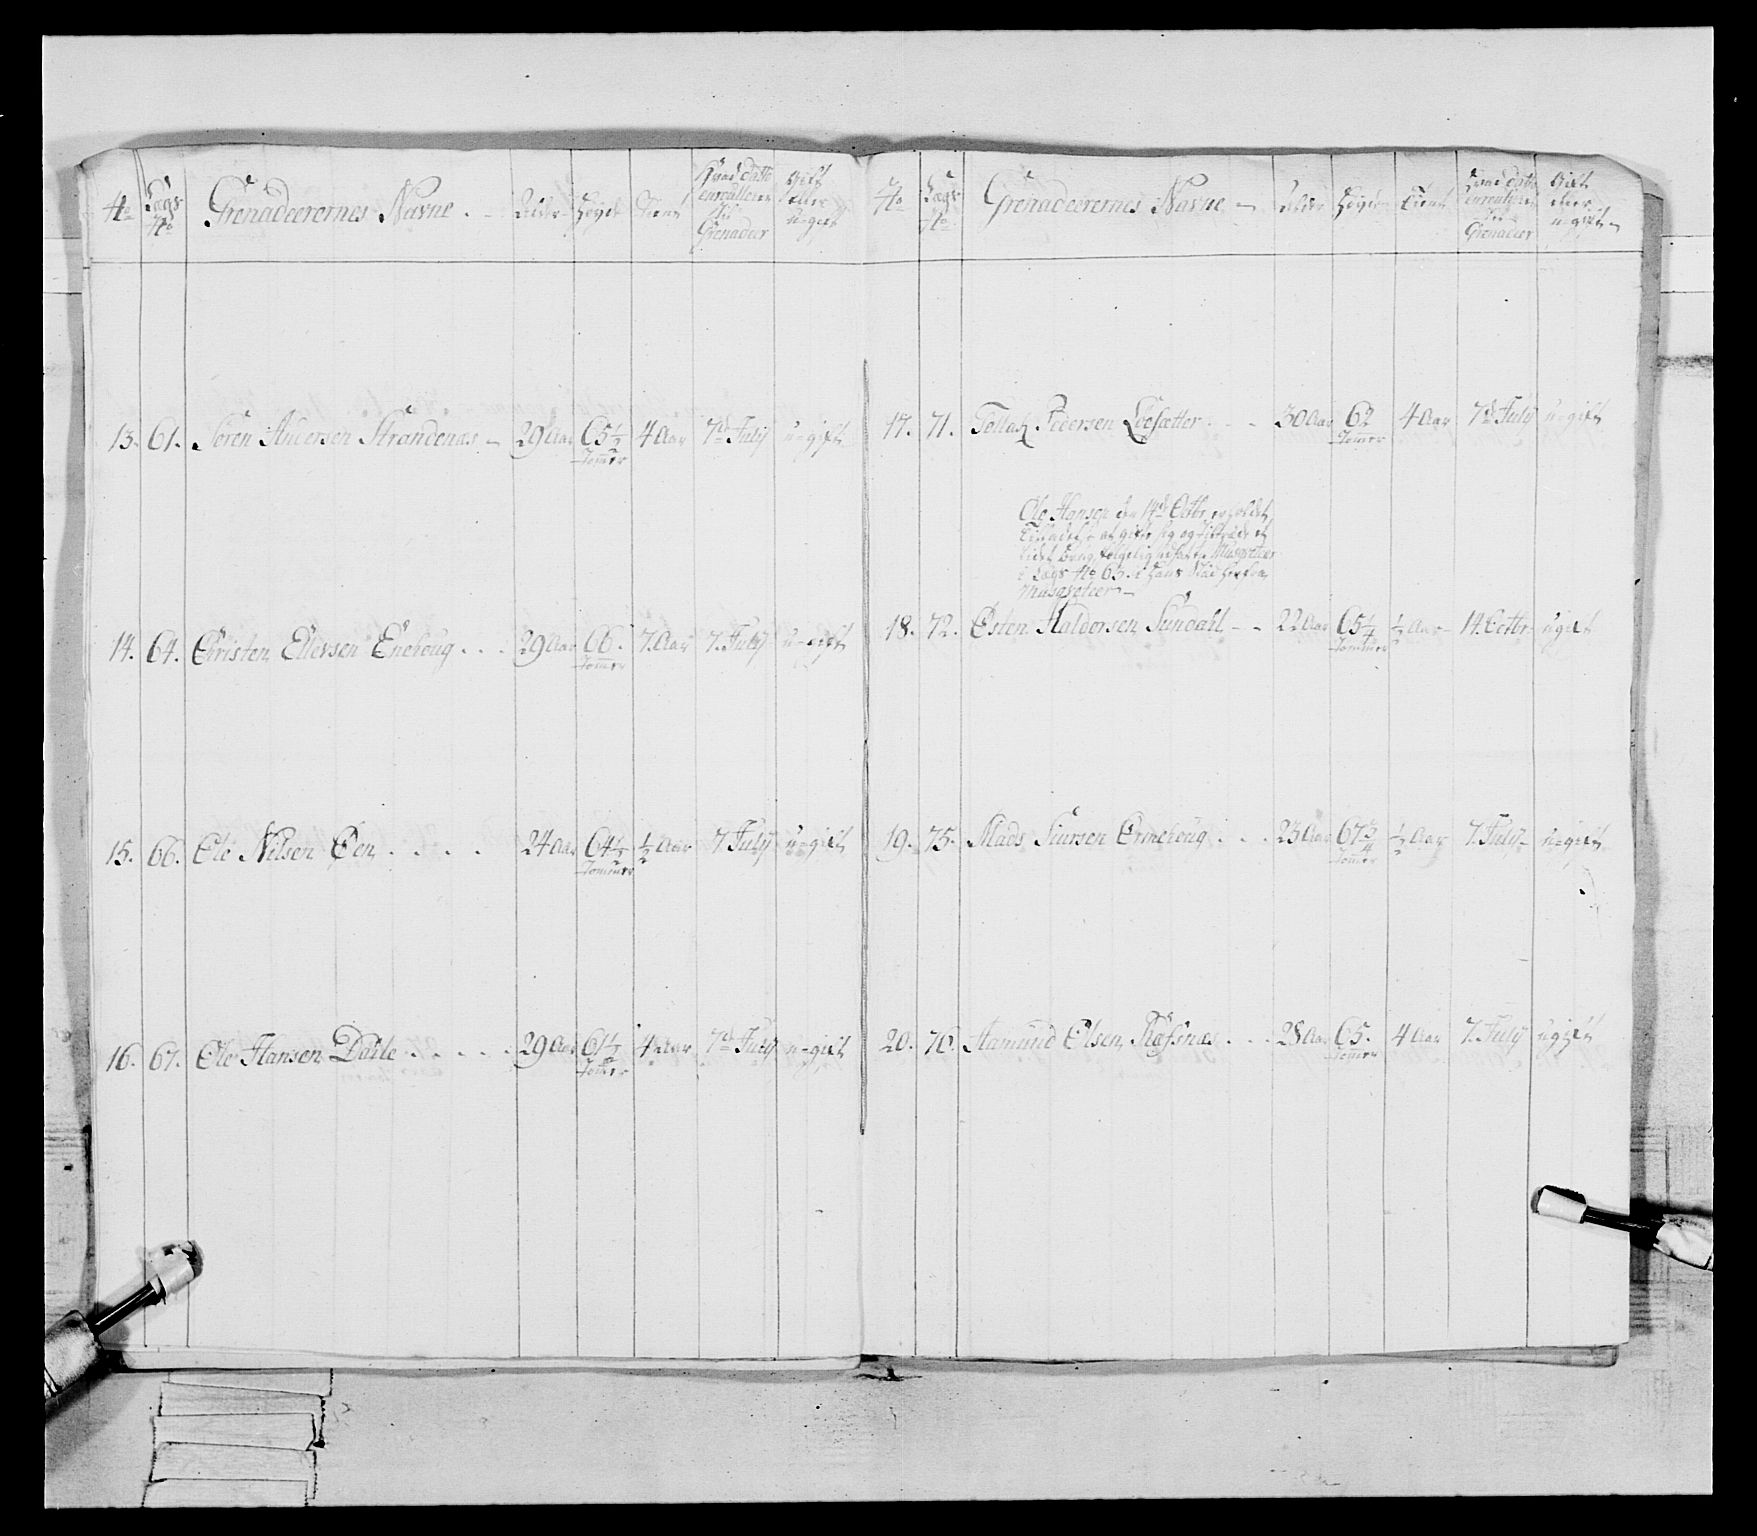 No
Lægs No
Grenadeerernes Navne
Alder
Høyde
Tient
Hvad Dato enroulleret til Grenadeer
Gift eller u-gift
13. 61. Søren Andersen Strandenæs 29 Aar 65 1/2 Tommer 4 Aar 7de July u-gift
14. 64. Christen Ellevsen Enehoug 29 Aar 66. Tommer 7 Aar 7. July u-gift
15. 66. Ole Nilsen Øen 24 Aar 64 1/2 Tommer 1/2 Aar 7 July u-gift
16. 67. Ole Hansen Dahle 29 Aar 61 1/2 Tommer 4 Aar 7de July u-gift
No
Lægs No
Grenadeerernes Navne
Alder
Høyde
Tient
Hvad Dato enroulleret til Grenadeer
Gift eller u-gift
17. 71. Tollak Pedersen Loesætter 30 Aar 62 Tommer 4 Aar 7de July u-gift
Ole Hansen den 14de Octbr. erholdet
Tilladelse at gifte sig og tiltræde et
lidet Brug, følgelig udsat til Musqveteer
i Lægs No 63. i hans Stæd
Musqveteer
18. 72. Østen Haldorsen Sundahl 22 Aar 65 1/4 Tommer 1/2 Aar 14. Octbr. ugift
19. 75. Mads Siursen Ermehoug 23 Aar 67 3/4 Tommer 1/2 Aar 7. July u-gift
20. 76. Aamund Olsen Røssnæs 28 Aar 65. Tommer 4 Aar 7. July ugift